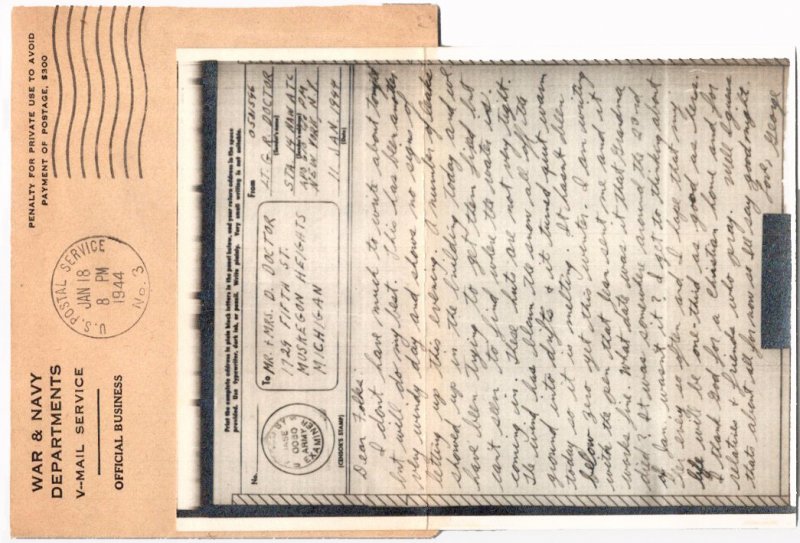 WAR & NAVY
DEPARTMENTS
V-MAIL SERVICE
OFFICIAL BUSINESS
PENALTY FOR PRIVATE USE TO AVOID
PAYMENT OF POSTAGE, $300
U.S. POSTAL SERVICE
JAN 18
8 PM
1944
No. 3
Print the complete address in plain block letters in the panel below, and your return address in the space
provided. Use typewriter, dark ink, or pencil. Write plainly. Very small writing is not suitable.
No.
ARMY EXAMINER
(CENSOR'S STAMP)
To MR. & MRS. D. DOCTOR
1729 FIFTH ST.
MUSKEGON HEIGHTS
MICHIGAN
From
LT. G. R. DOCTOR
(Sender's name)
(Sender's address)
NEW YORK, N.Y.
11 JAN. 1944
(Date)
Dear Folks:
I don't have much to write about tonight
but will do my best. This has been another
very windy day and shows no signs of
letting up this evening. A number of leaks
showed up in the building today and we
have been trying to get them fixed but
can't seem to find where the water is
coming in. These huts are not very tight.
The wind has blown the snow all off the
ground into drifts & it turned quite warm
today so it is melting. It hasn't been
below zero yet this winter. I am writing
with the pen that Jean sent me and it
works fine. What date was it that Grandma
died? It was somewhere around the 22nd
of Jan. wasn't it? I got to thinking about
her every so often and I hope that my
life will be one-third as good as hers.
I thank God for a Christian home and for
relatives & friends who pray. Well I guess
that's about all for now so I'll say goodnight
Love, George